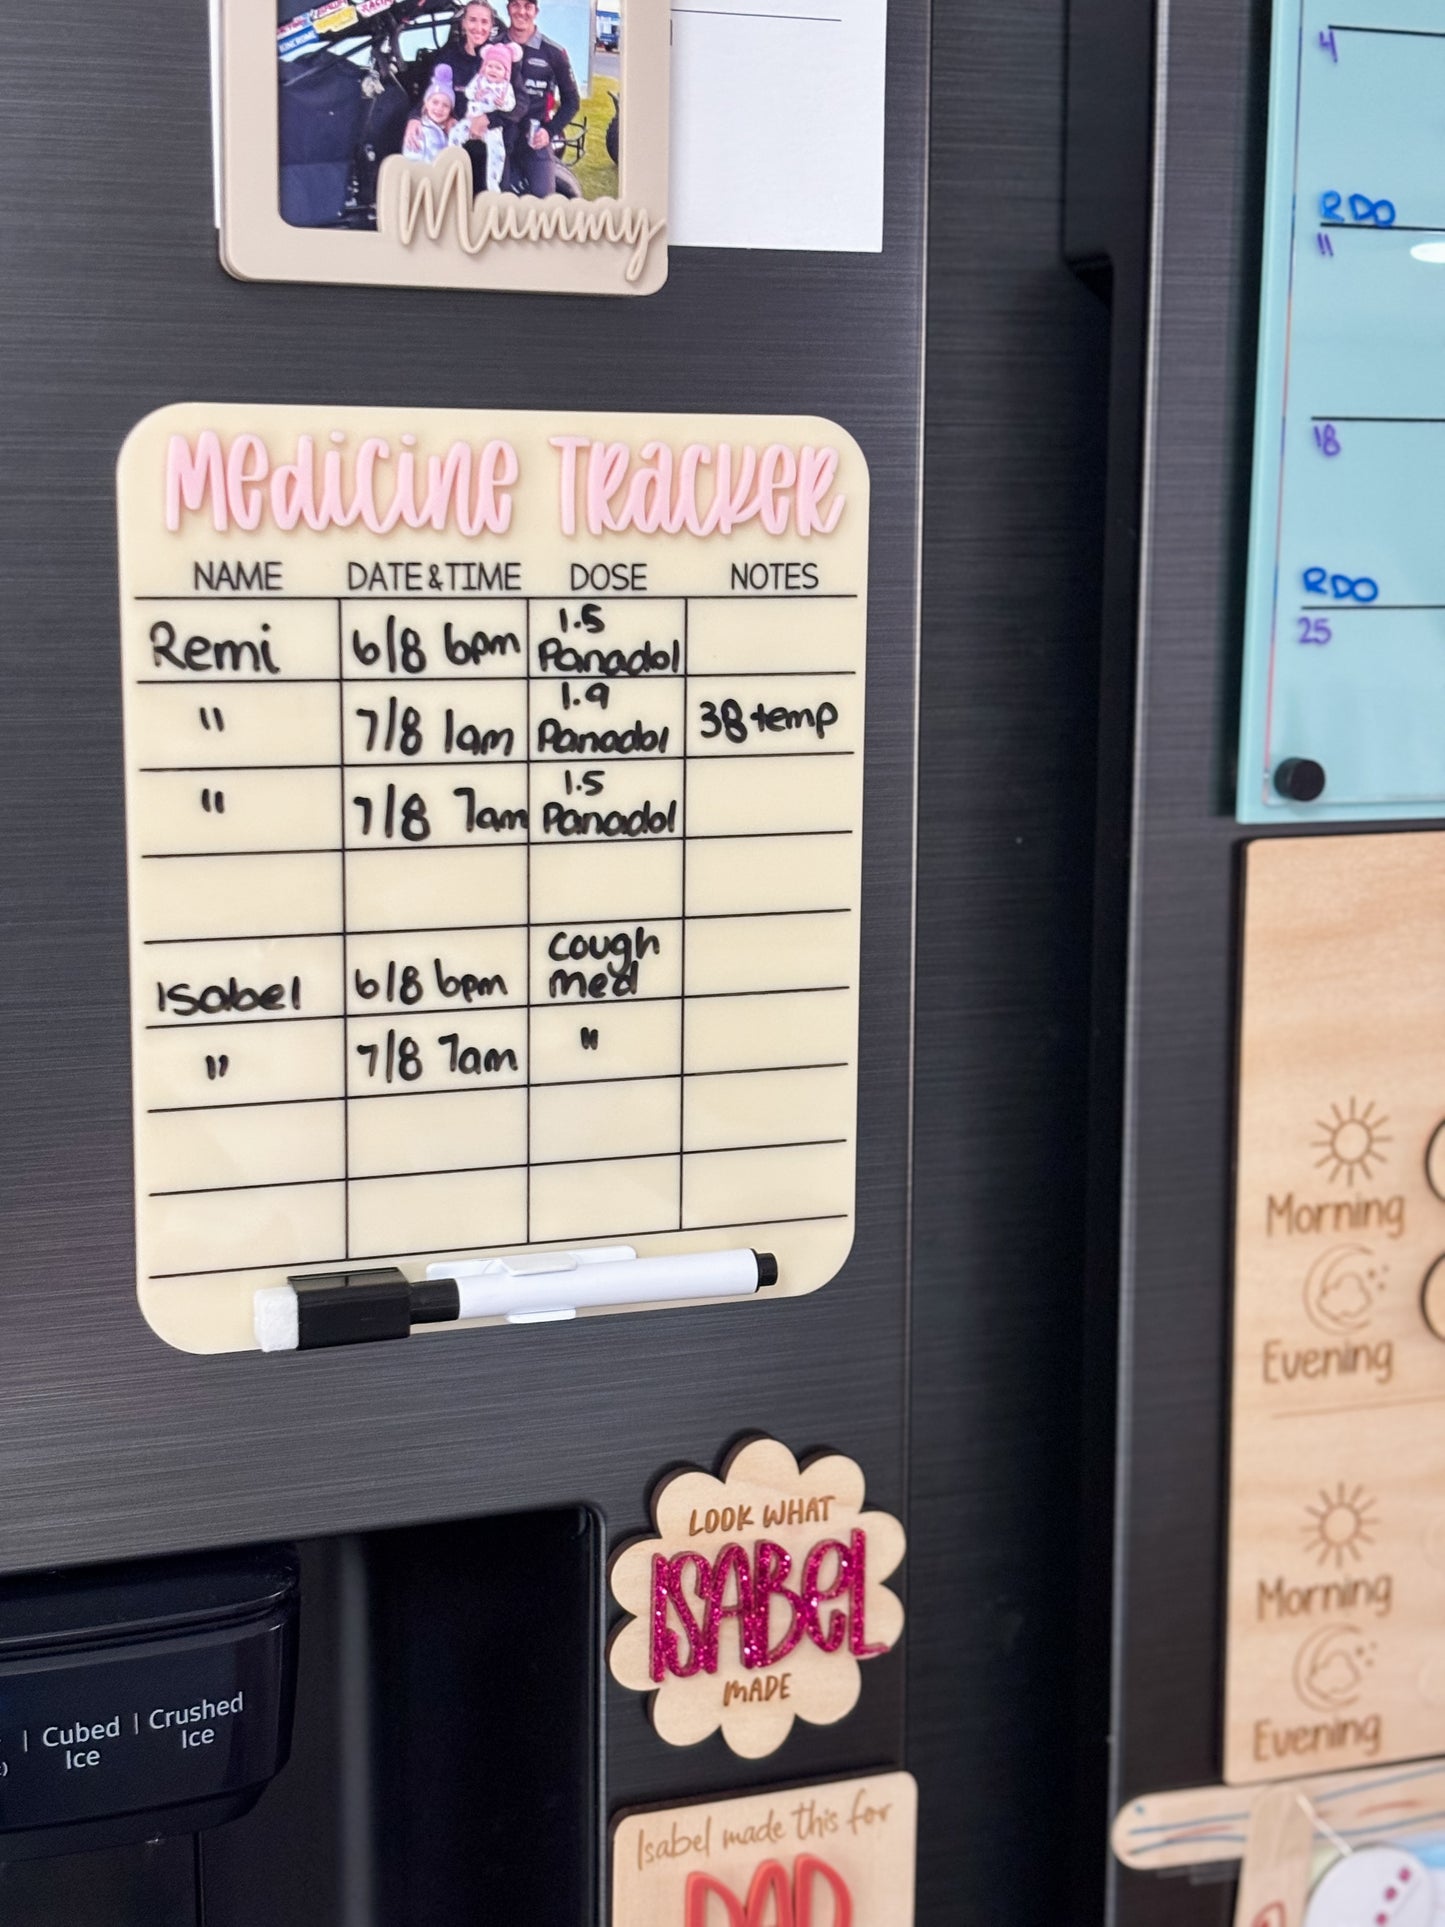 Mummy
Medicine Tracker
NAME DATE&TIME DOSE NOTES
Remi 6/8 6pm 1.5 Panadol
" 7/8 1am 1.9 Panadol 38 temp
" 7/8 7am 1.5 Panadol
Isabel 6/8 6pm cough med
" 7/8 7am "
LOOK WHAT
ISABEL
MADE
Isabel made this for
DAD
Cubed Ice | Crushed Ice
4
RDO
11
18
RDO
25
Morning
Evening
Morning
Evening